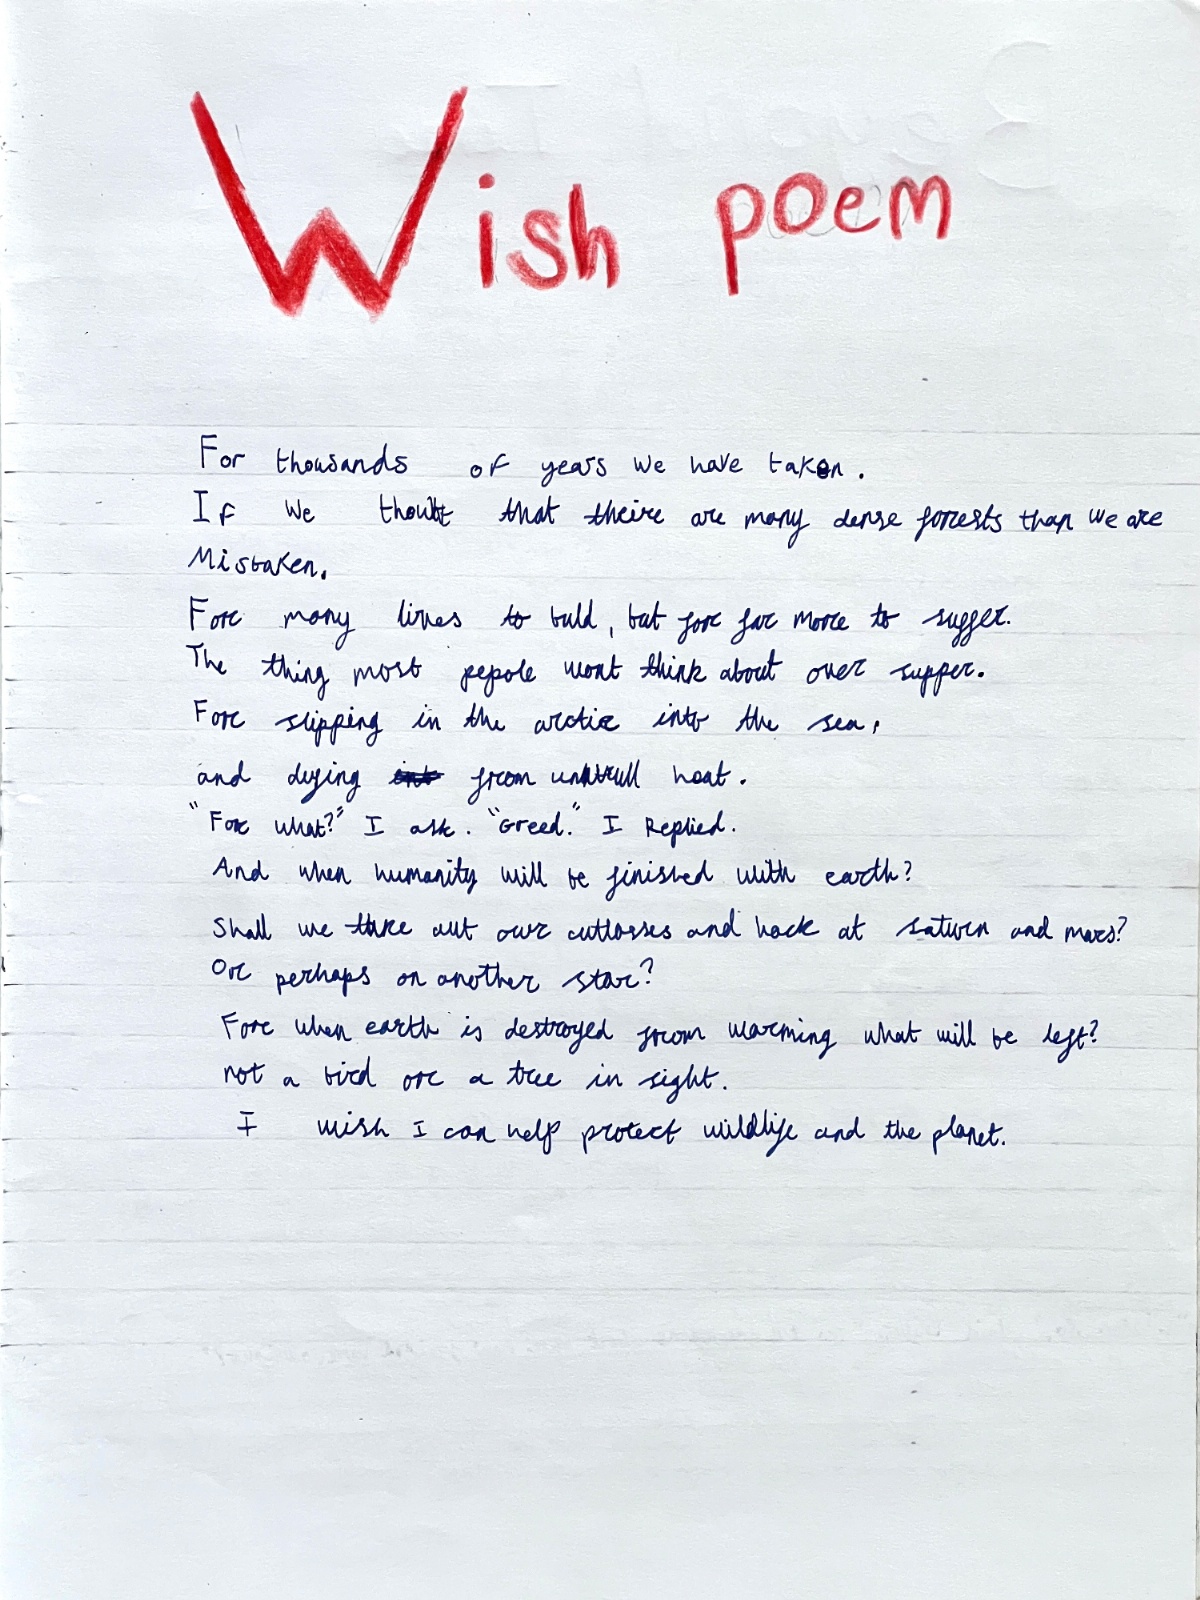 Wish poem
For thousands of years we have taken.
If we thoult that theire are many dense forests than we are
Mistaken.
For many lives to buld, but for far more to suffer.
The thing most pepole wont think about over supper.
For slipping in the arctic into the sea,
and dying from heat.
"For what?" I ask. "Greed." I Replied.
And when humanity will be finished with earth?
Shall we take out our cutlasses and hack at saturn and mars?
Or perhaps on another star?
For when earth is destroyed from warming what will be left?
not a bird or a tree in sight.
I wish I can help protect wildlife and the planet.